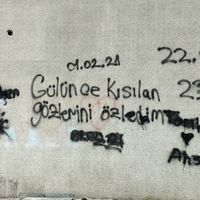 01.02.21
Gülünce Kısılan
gözlerini özledim
22.
23